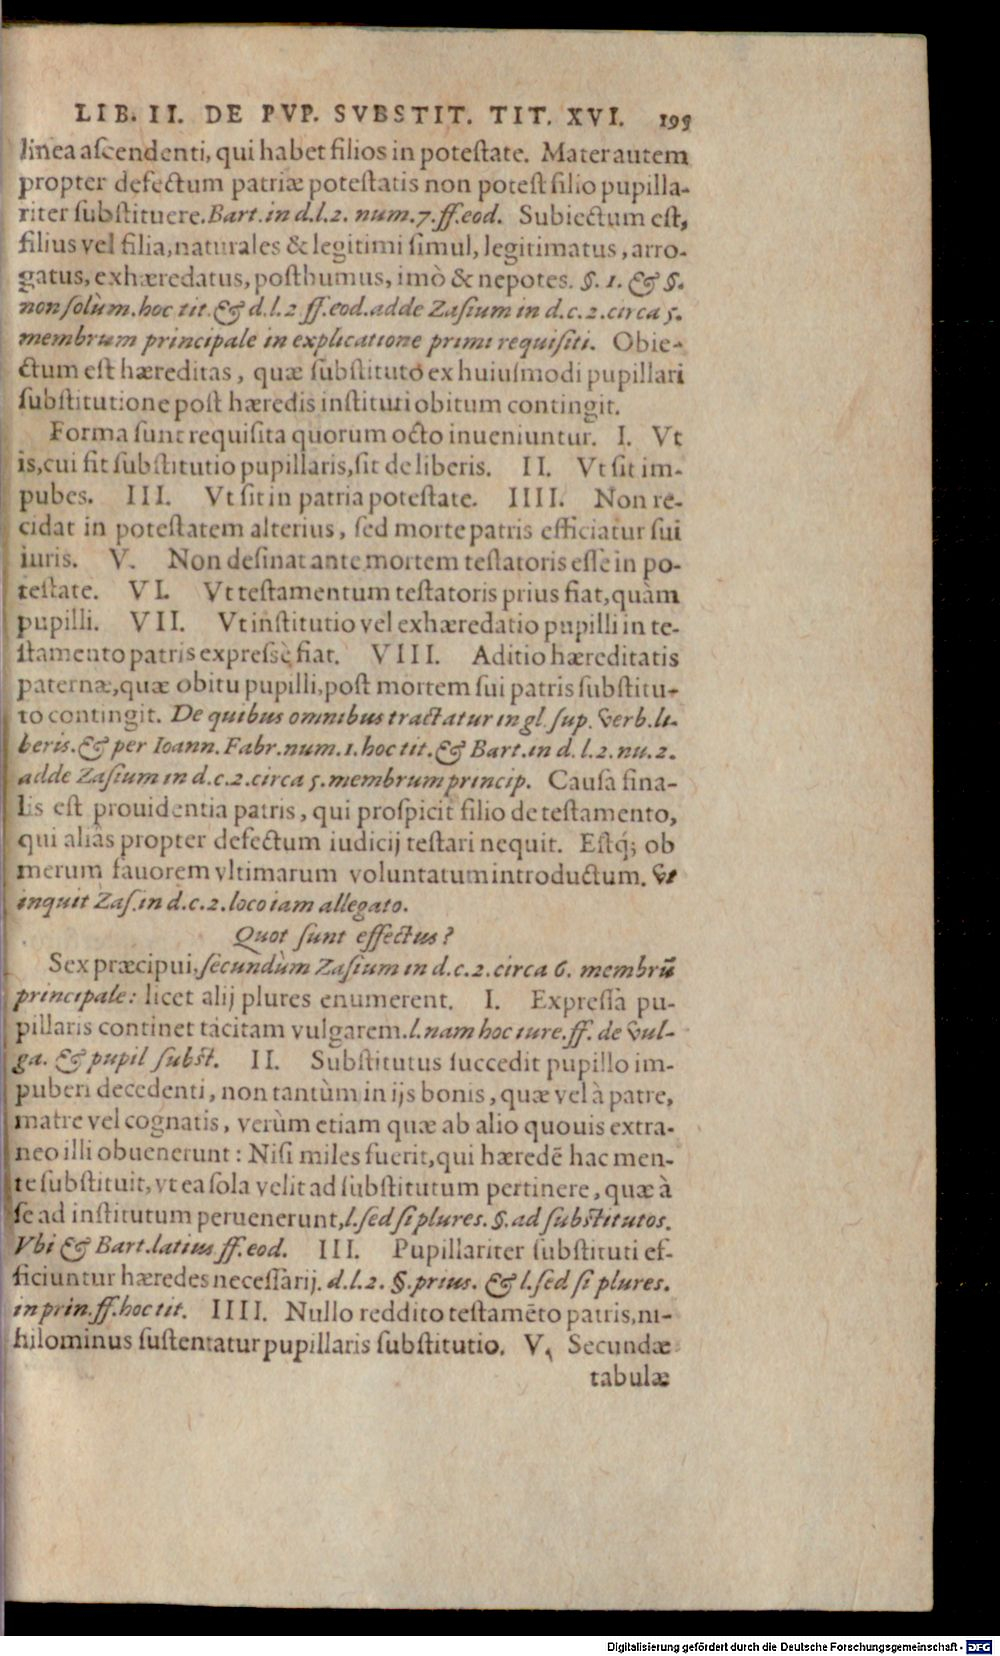 LIB. II. DE PVP. SVBSTIT. TIT. XVI. 195
linea aſcendenti, qui habet filios in poteſtate. Mater autem
propter defectum patriæ poteſtatis non poteſt filio pupilla-
riter ſubſtituere. Bart. in d. l. 2. num. 7. ff. eod. Subiectum eſt,
filius vel filia, naturales & legitimi ſimul, legitimatus, arro-
gatus, exhæredatus, poſthumus, imò & nepotes. §. 1. & §.
non ſolùm. hoc tit. & d. l. 2 ff. eod. adde Zaſium in d. c. 2. circa 5.
membrum principale in explicatione primi requiſiti. Obie-
ctum eſt hæreditas, quæ ſubſtituto ex huiuſmodi pupillari
ſubſtitutione poſt hæredis inſtituti obitum contingit.
Forma ſunt requiſita quorum octo inueniuntur. I. Vt
is, cui fit ſubſtitutio pupillaris, ſit de liberis. II. Vt ſit im-
pubes. III. Vt ſit in patria poteſtate. IIII. Non re-
cidat in poteſtatem alterius, ſed morte patris efficiatur ſui
iuris. V. Non deſinat ante mortem teſtatoris eſſe in po-
teſtate. VI. Vt teſtamentum teſtatoris prius fiat, quàm
pupilli. VII. Vt inſtitutio vel exhæredatio pupilli in te-
ſtamento patris expreſsè fiat. VIII. Aditio hæreditatis
paternæ, quæ obitu pupilli, poſt mortem ſui patris ſubſtitu-
to contingit. De quibus omnibus tractatur in gl. ſup. verb. li-
beris. & per Ioann. Fabr. num. 1. hoc tit. & Bart. in d. l. 2. nu. 2.
adde Zaſium in d. c. 2. circa 5. membrum princip. Cauſa fina-
lis eſt prouidentia patris, qui proſpicit filio de teſtamento,
qui aliàs propter defectum iudicij teſtari nequit. Eſtq́; ob
merum fauorem vltimarum voluntatum introductum. vt
inquit Zaſ. in d. c. 2. loco iam allegato.
Quot ſunt effectus?
Sex præcipui, ſecundùm Zaſium in d. c. 2. circa 6. membrū
principale: licet alij plures enumerent. I. Expreſſa pu-
pillaris continet tacitam vulgarem. l. nam hoc iure. ff. de vul-
ga. & pupil ſubst. II. Subſtitutus ſuccedit pupillo im-
puberi decedenti, non tantùm in ijs bonis, quæ vel à patre,
matre vel cognatis, verùm etiam quæ ab alio quouis extra-
neo illi obuenerunt: Niſi miles fuerit, qui hæredē hac men-
te ſubſtituit, vt ea ſola velit ad ſubſtitutum pertinere, quæ à
ſe ad inſtitutum peruenerunt, l. ſed ſi plures. §. ad ſubſtitutos.
Vbi & Bart. latius ff. eod. III. Pupillariter ſubſtituti ef-
ficiuntur hæredes neceſſarij. d. l. 2. §. prius. & l. ſed ſi plures.
in prin. ff. hoc tit. IIII. Nullo reddito teſtamēto patris, ni-
hilominus ſuſtentatur pupillaris ſubſtitutio. V. Secundæ
tabulæ
Digitalisierung gefördert durch die Deutsche Forschungsgemeinschaft - DFG